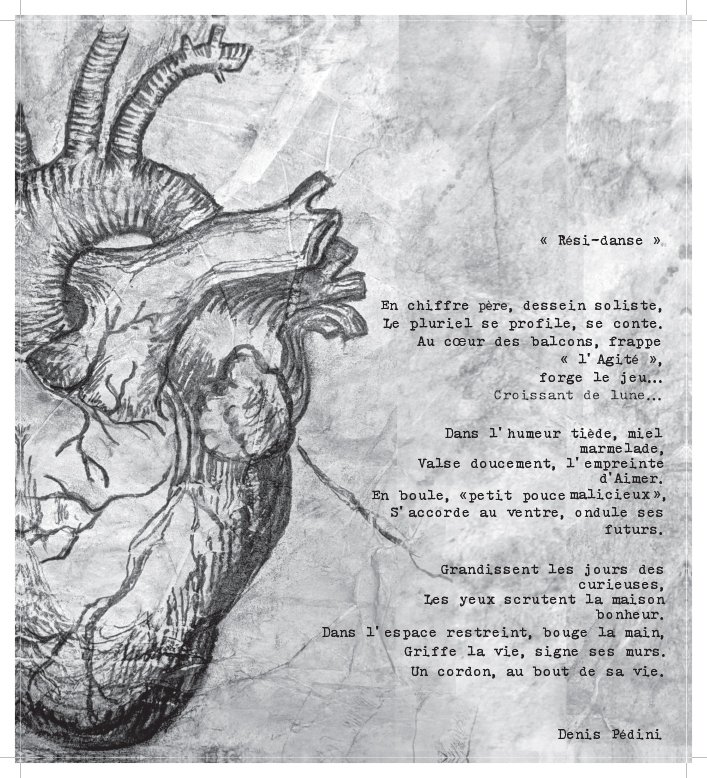 « Rési-danse »
En chiffre père, dessein soliste,
Le pluriel se profile, se conte.
Au cœur des balcons, frappe
« l'Agité »,
forge le jeu...
Croissant de lune...
Dans l'humeur tiède, miel
marmelade,
Valse doucement, l'empreinte
d'Aimer.
En boule, «petit pouce malicieux»,
S'accorde au ventre, ondule ses
futurs.
Grandissent les jours des
curieuses,
Les yeux scrutent la maison
bonheur.
Dans l'espace restreint, bouge la main,
Griffe la vie, signe ses murs.
Un cordon, au bout de sa vie.
Denis Pédini